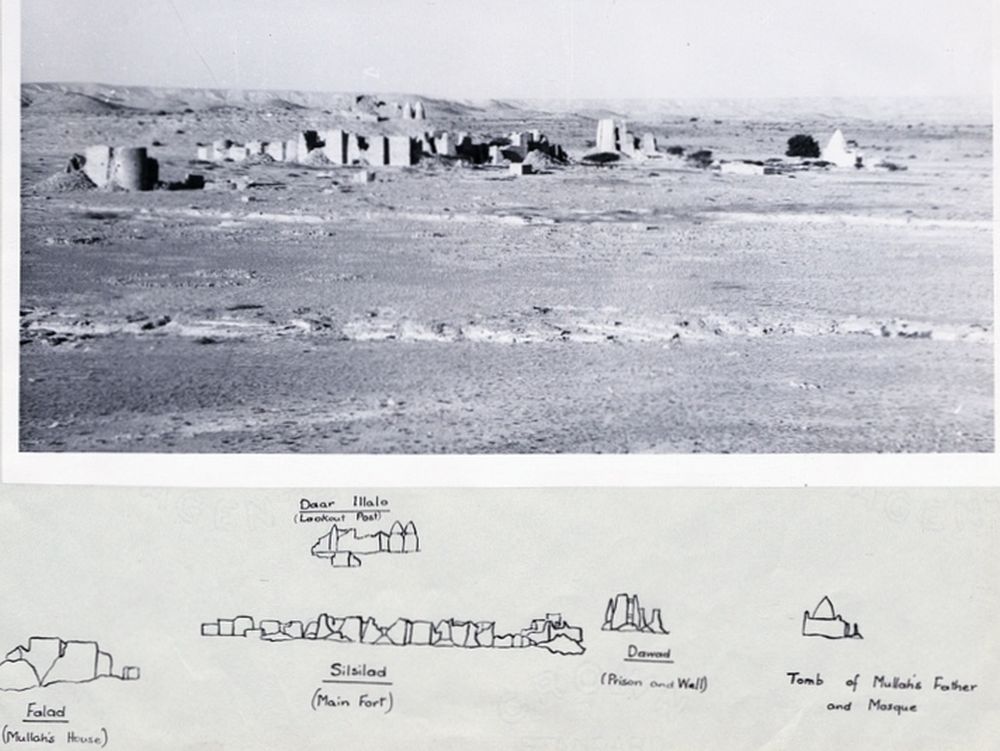 Daar Illalo
(Lookout Post)
Silsilad
(Main Fort)
Dawad
(Prison and Well)
Tomb of Mullah's Father
and Mosque
Falad
(Mullah's House)